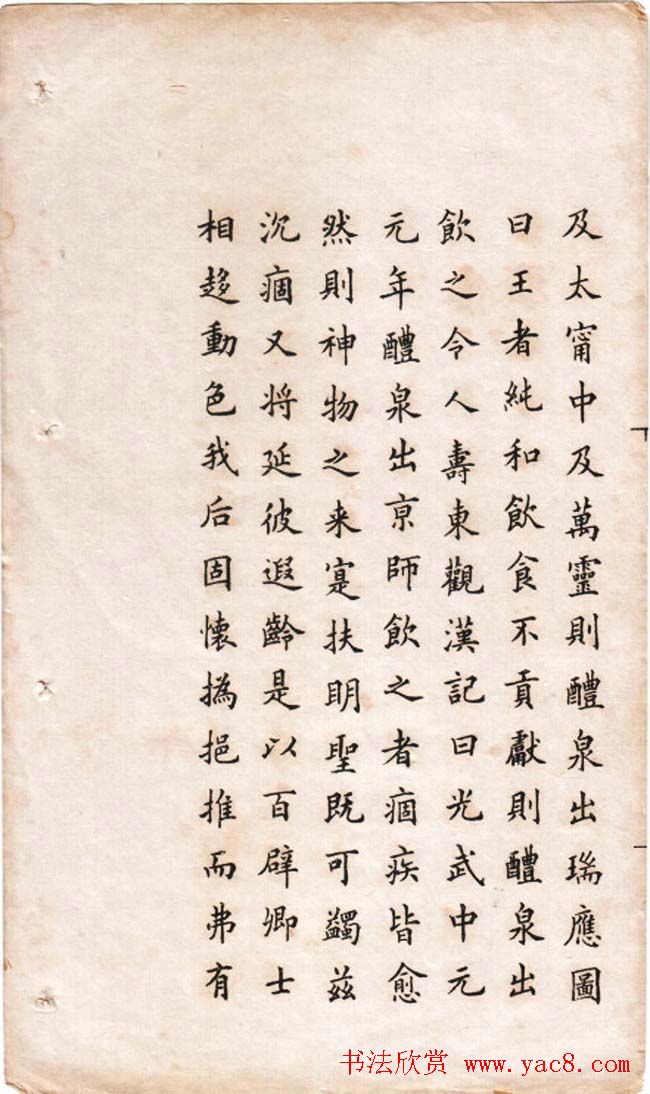 及太甯中及萬靈則醴泉出瑞應圖
曰王者純和飲食不貢獻則醴泉出
飲之令人壽東觀漢記曰光武中元
元年醴泉出京師飲之者痼疾皆愈
然則神物之来寔扶明聖既可蠲兹
沉痼又将延彼遐齡是以百辟卿士
相趍動色我后固懷撝挹推而弗有
书法欣赏 www.yac8.com